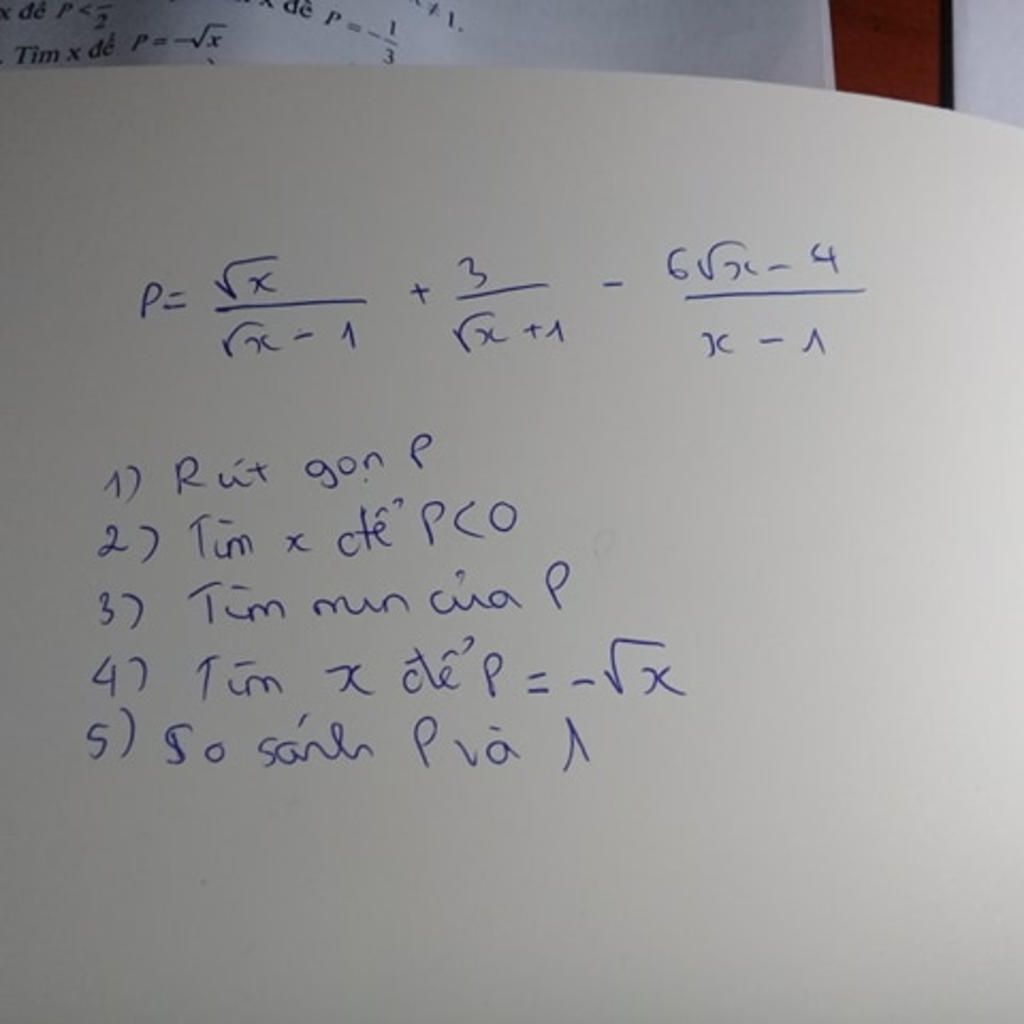 x để P < 
x để P = -1/3
≠ 1.
. Tìm x để P = -√x
P = √x/(√x - 1) + 3/(√x + 1) - (6√x - 4)/(x - 1)
1) Rút gọn P
2) Tìm x để P < 0
3) Tìm min của P
4) Tìm x để P = -√x
5) So sánh P và 1